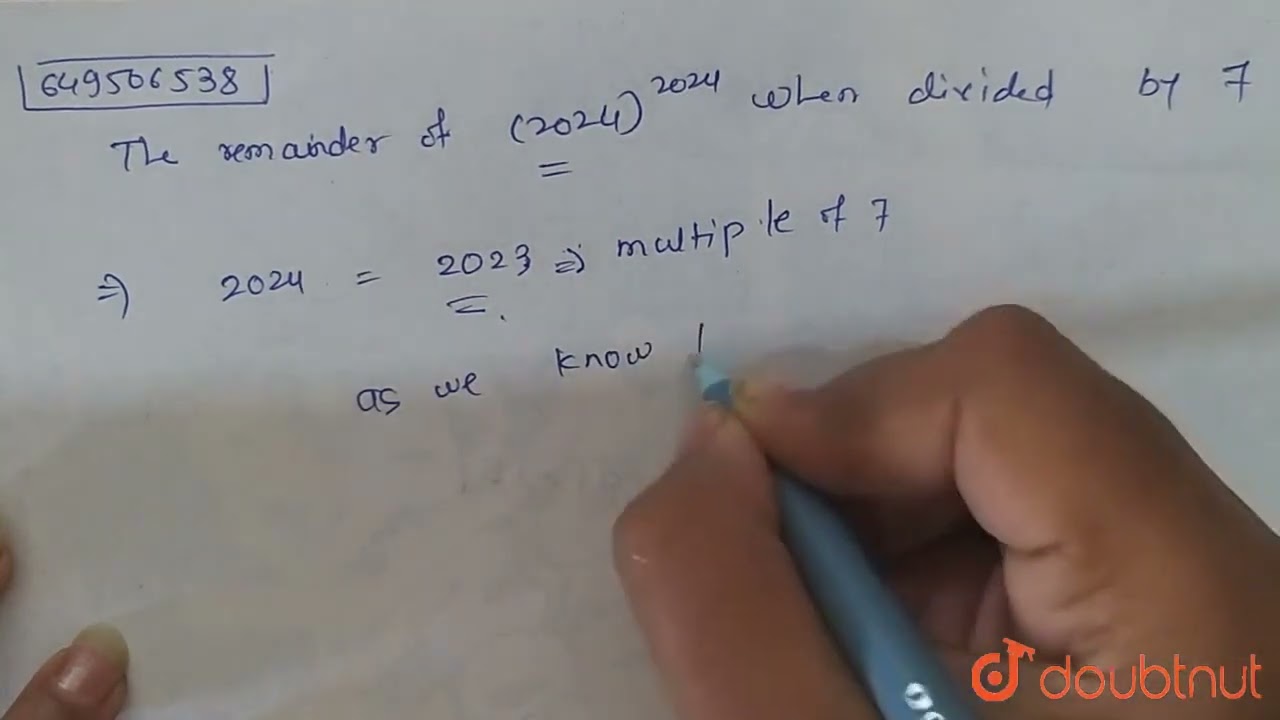 649506538
The remainder of (2024)^2024 when divided by 7
=> 2024 = 2023 => multiple of 7
as we know
doubtnut